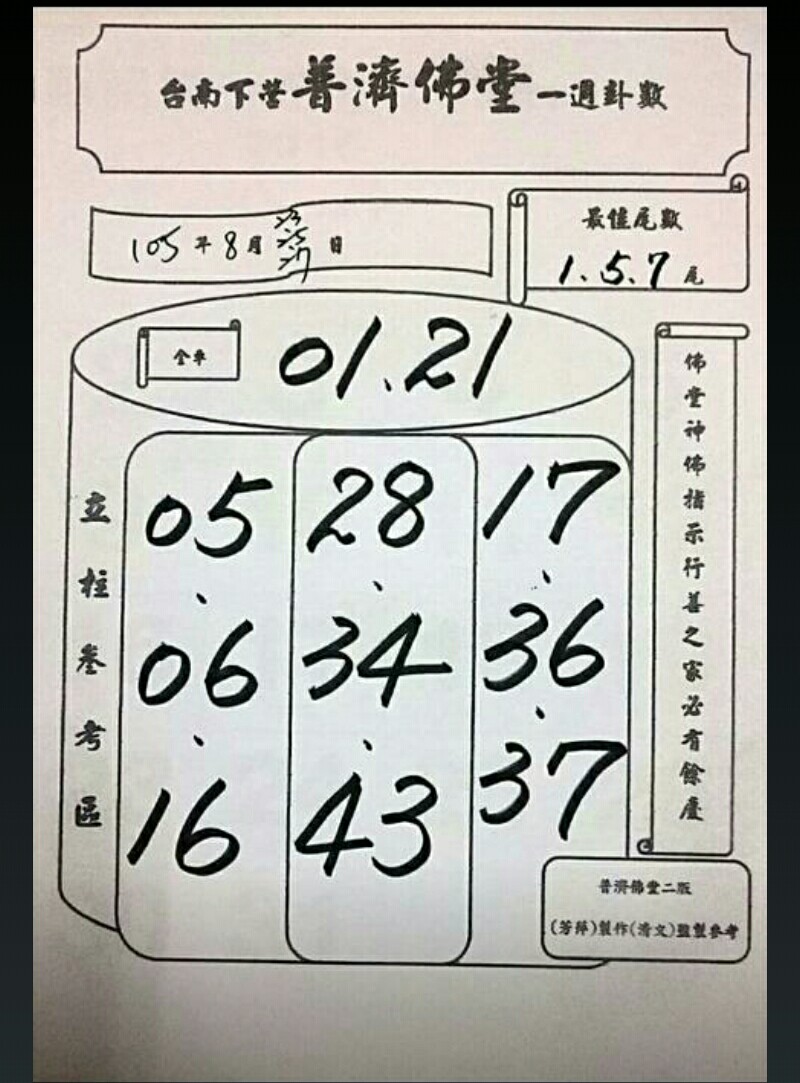 台南下营普濟佛堂一週卦數
105年8月 日
最佳尾數
1.5.7尾
全車
01.21
立柱叁考區
05、06、16
28、34、43
17、36、37
佛堂神佛指示行善之家必有餘慶
普濟佛堂二版
(芳萍)製作(清文)監製參考